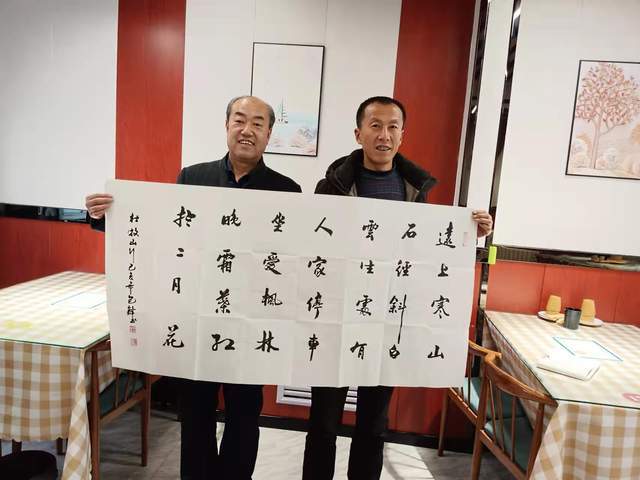 遠上寒山
石徑斜白
雲生處有
人家停車
坐愛楓林
晚霜葉紅
於二月花
杜牧山行 己亥 書